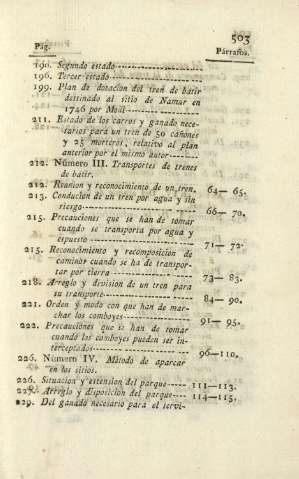 503
Pág. Párrafos.
190. Segundo estado
196. Tercer estado
199. Plan de dotacion del tren de batir
destinado al sitio de Namur en
1746 por Moül
211. Estado de los carros y ganado nece-
sarios para un tren de 50 cañones
y 25 morteros, relativo al plan
anterior por el mismo autor
212. Número III. Transportes de trenes
de batir.
212. Reunion y reconocimiento de un tren. 64— 65.
213. Conduccion de un tren por agua y sin
riesgo 66— 70.
215. Precauciones que se han de tomar
cuando se transporta por agua y
espuesto 71— 72.
215. Reconocimiento y recomposicion de
caminos cuando se ha de transpor-
tar por tierra 73— 83.
218. Arreglo y division de un tren para
su transporte 84— 90.
221. Orden y modo con que han de mar-
char los comboyes 91— 95.
222. Precauciones que se han de tomar
cuando los comboyes pueden ser in-
terceptados 96—110.
226. Número IV. Método de aparcar
en los sitios.
226. Situacion y estension del parque 111—113.
227. Arreglo y disposicion del parque 114—115.
229. Del ganado necesario para el servi-